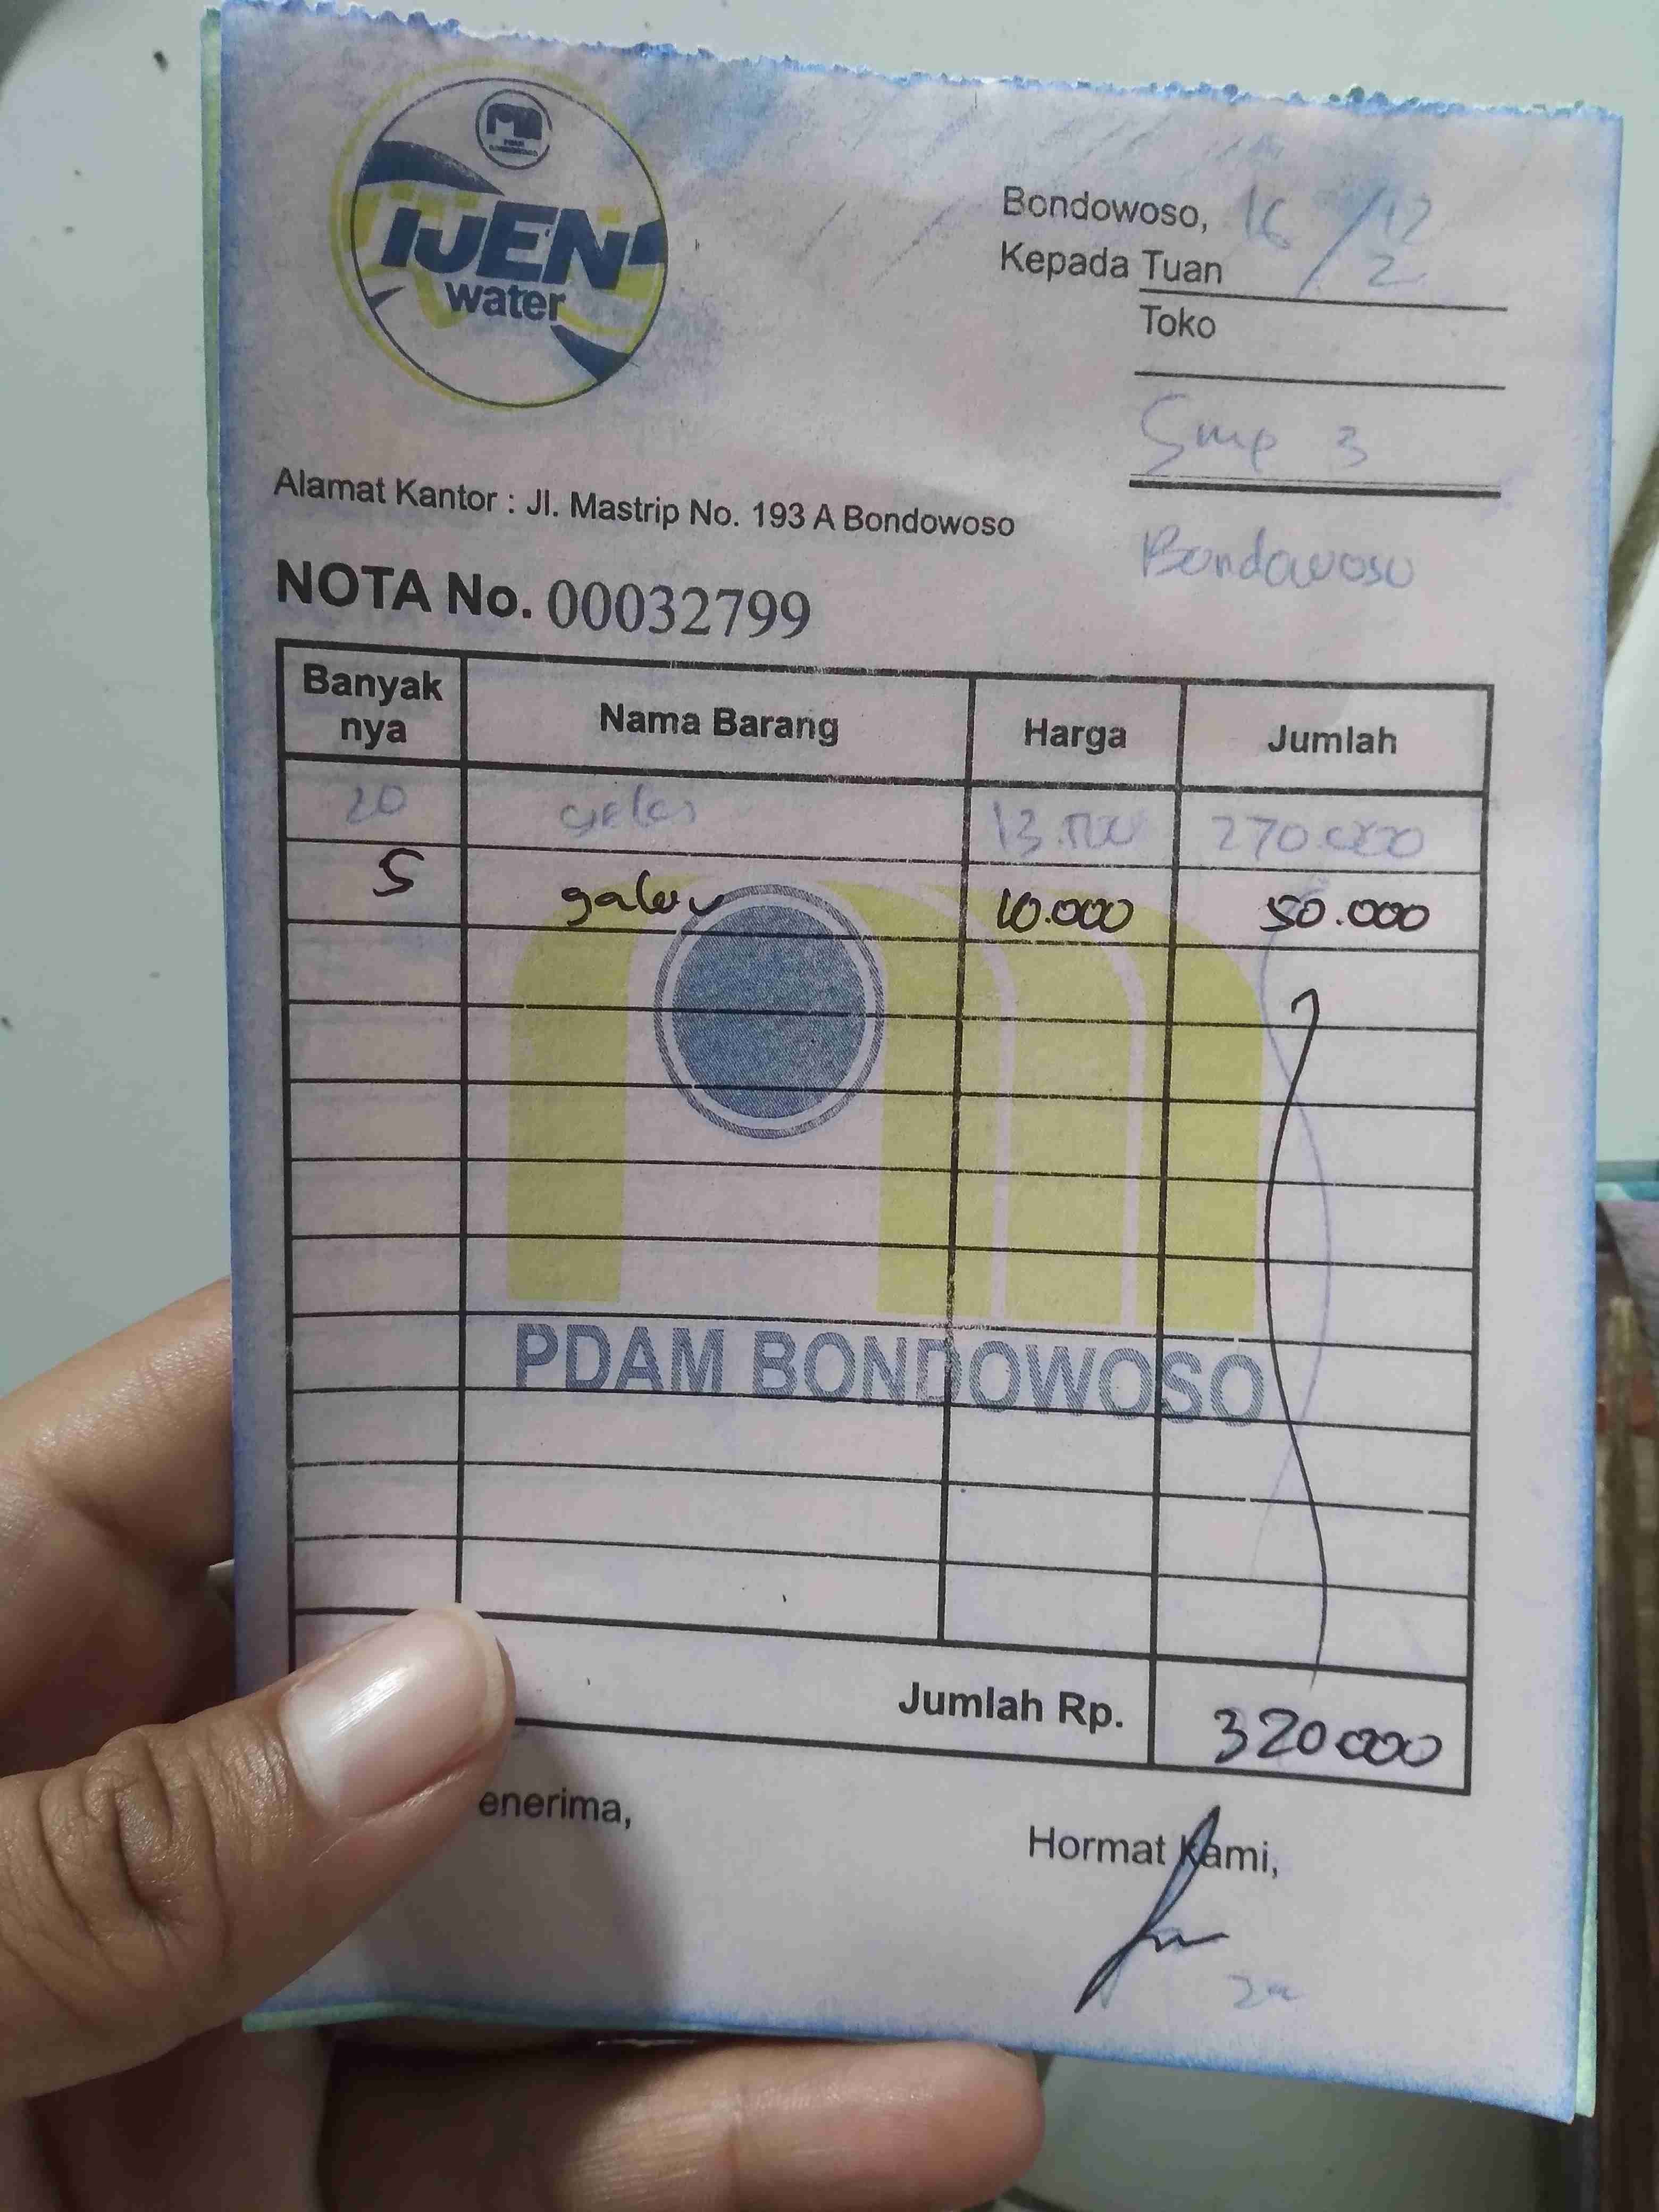 IJEN
water
Bondowoso, 16 /12
Kepada Tuan 2
Toko
Smp 3
Bondowoso
Alamat Kantor : Jl. Mastrip No. 193 A Bondowoso
NOTA No. 00032799
Banyak nya Nama Barang Harga Jumlah
20 gelas 13.500 270.000
5 galon 10.000 50.000
PDAM BONDOWOSO
Jumlah Rp. 320.000
enerima,
Hormat Kami,